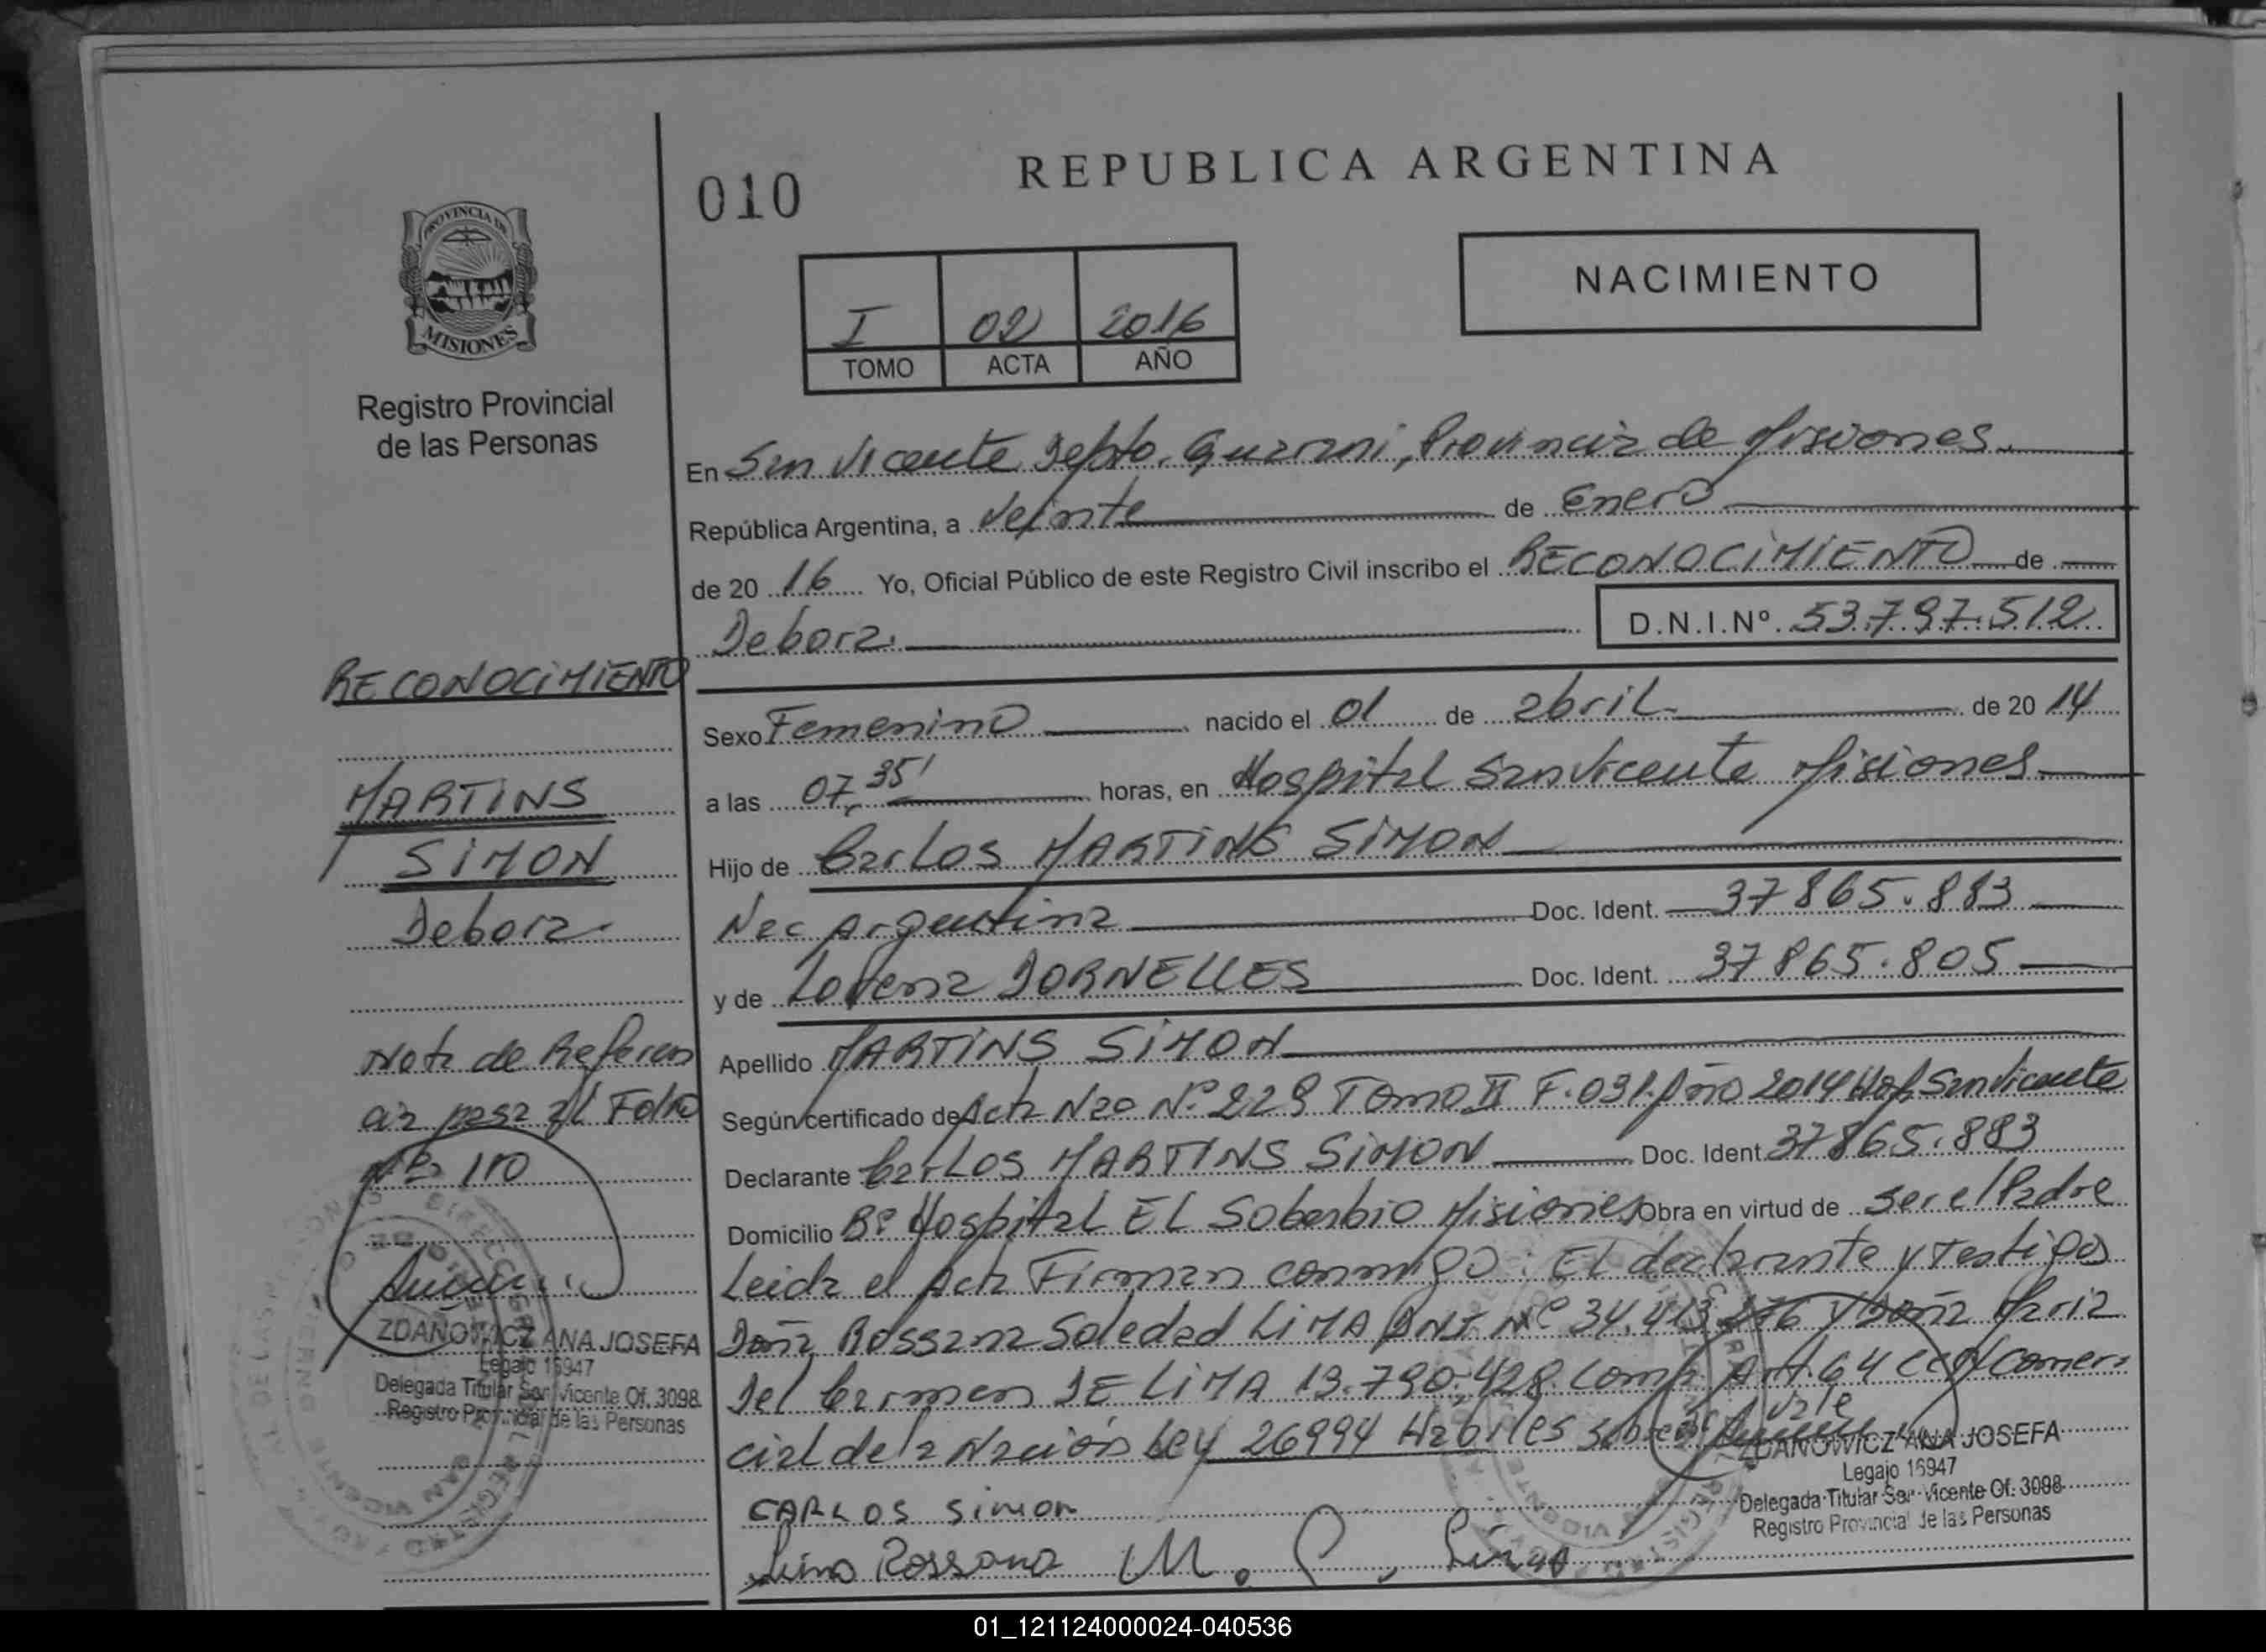 010
REPUBLICA ARGENTINA
NACIMIENTO
PROVINCIA DE
MISIONES
I 02 2016
TOMO ACTA AÑO
Registro Provincial
de las Personas
En San Vicente Depto. Guarani, Provincia de Misiones.
República Argentina, a veinte de Enero
de 20 16 Yo, Oficial Público de este Registro Civil inscribo el RECONOCIMIENTO de
Debora.
D.N.I.Nº. 53.797.512
RECONOCIMIENTO
MARTINS
SIMON
Debora.
Nota de Referen
cia pasa al Folio
Nº 110
ZDANOWICZ ANA JOSEFA
Legajo 16947
Delegada Titular San Vicente Of. 3098
Registro Provincial de las Personas
Sexo Femenino nacido el 01 de abril de 20 14
a las 07,35' horas, en Hospital San Vicente Misiones
Hijo de Carlos MARTINS SIMON
Nac Argentina Doc. Ident. 37865.883
y de Lorena DORNELLES Doc. Ident. 37865.805
Apellido MARTINS SIMON
Según certificado de Acta Nac Nº 229 Tomo II F.031. Año 2014 San Vicente
Declarante Carlos MARTINS SIMON Doc. Ident 37865.883
Domicilio Bº Hospital EL Soberbio Misiones Obra en virtud de ser el Padre
Leida el Acta Firman conmigo: El declarante y Testigos
Doña Rossana Soledad LIMA DNI Nº 34.413. y Doña Maria
Del Carmen DE LIMA 13.790.428. Art. 64 Comer
cial de la Nación Ley 26994 Habiles
vale
ZDANOWICZ ANA JOSEFA
Legajo 16947
Delegada Titular San Vicente Of. 3098
Registro Provincial de las Personas
CARLOS simon
Lima Rossana M. C. Lima
01_121124000024-040536